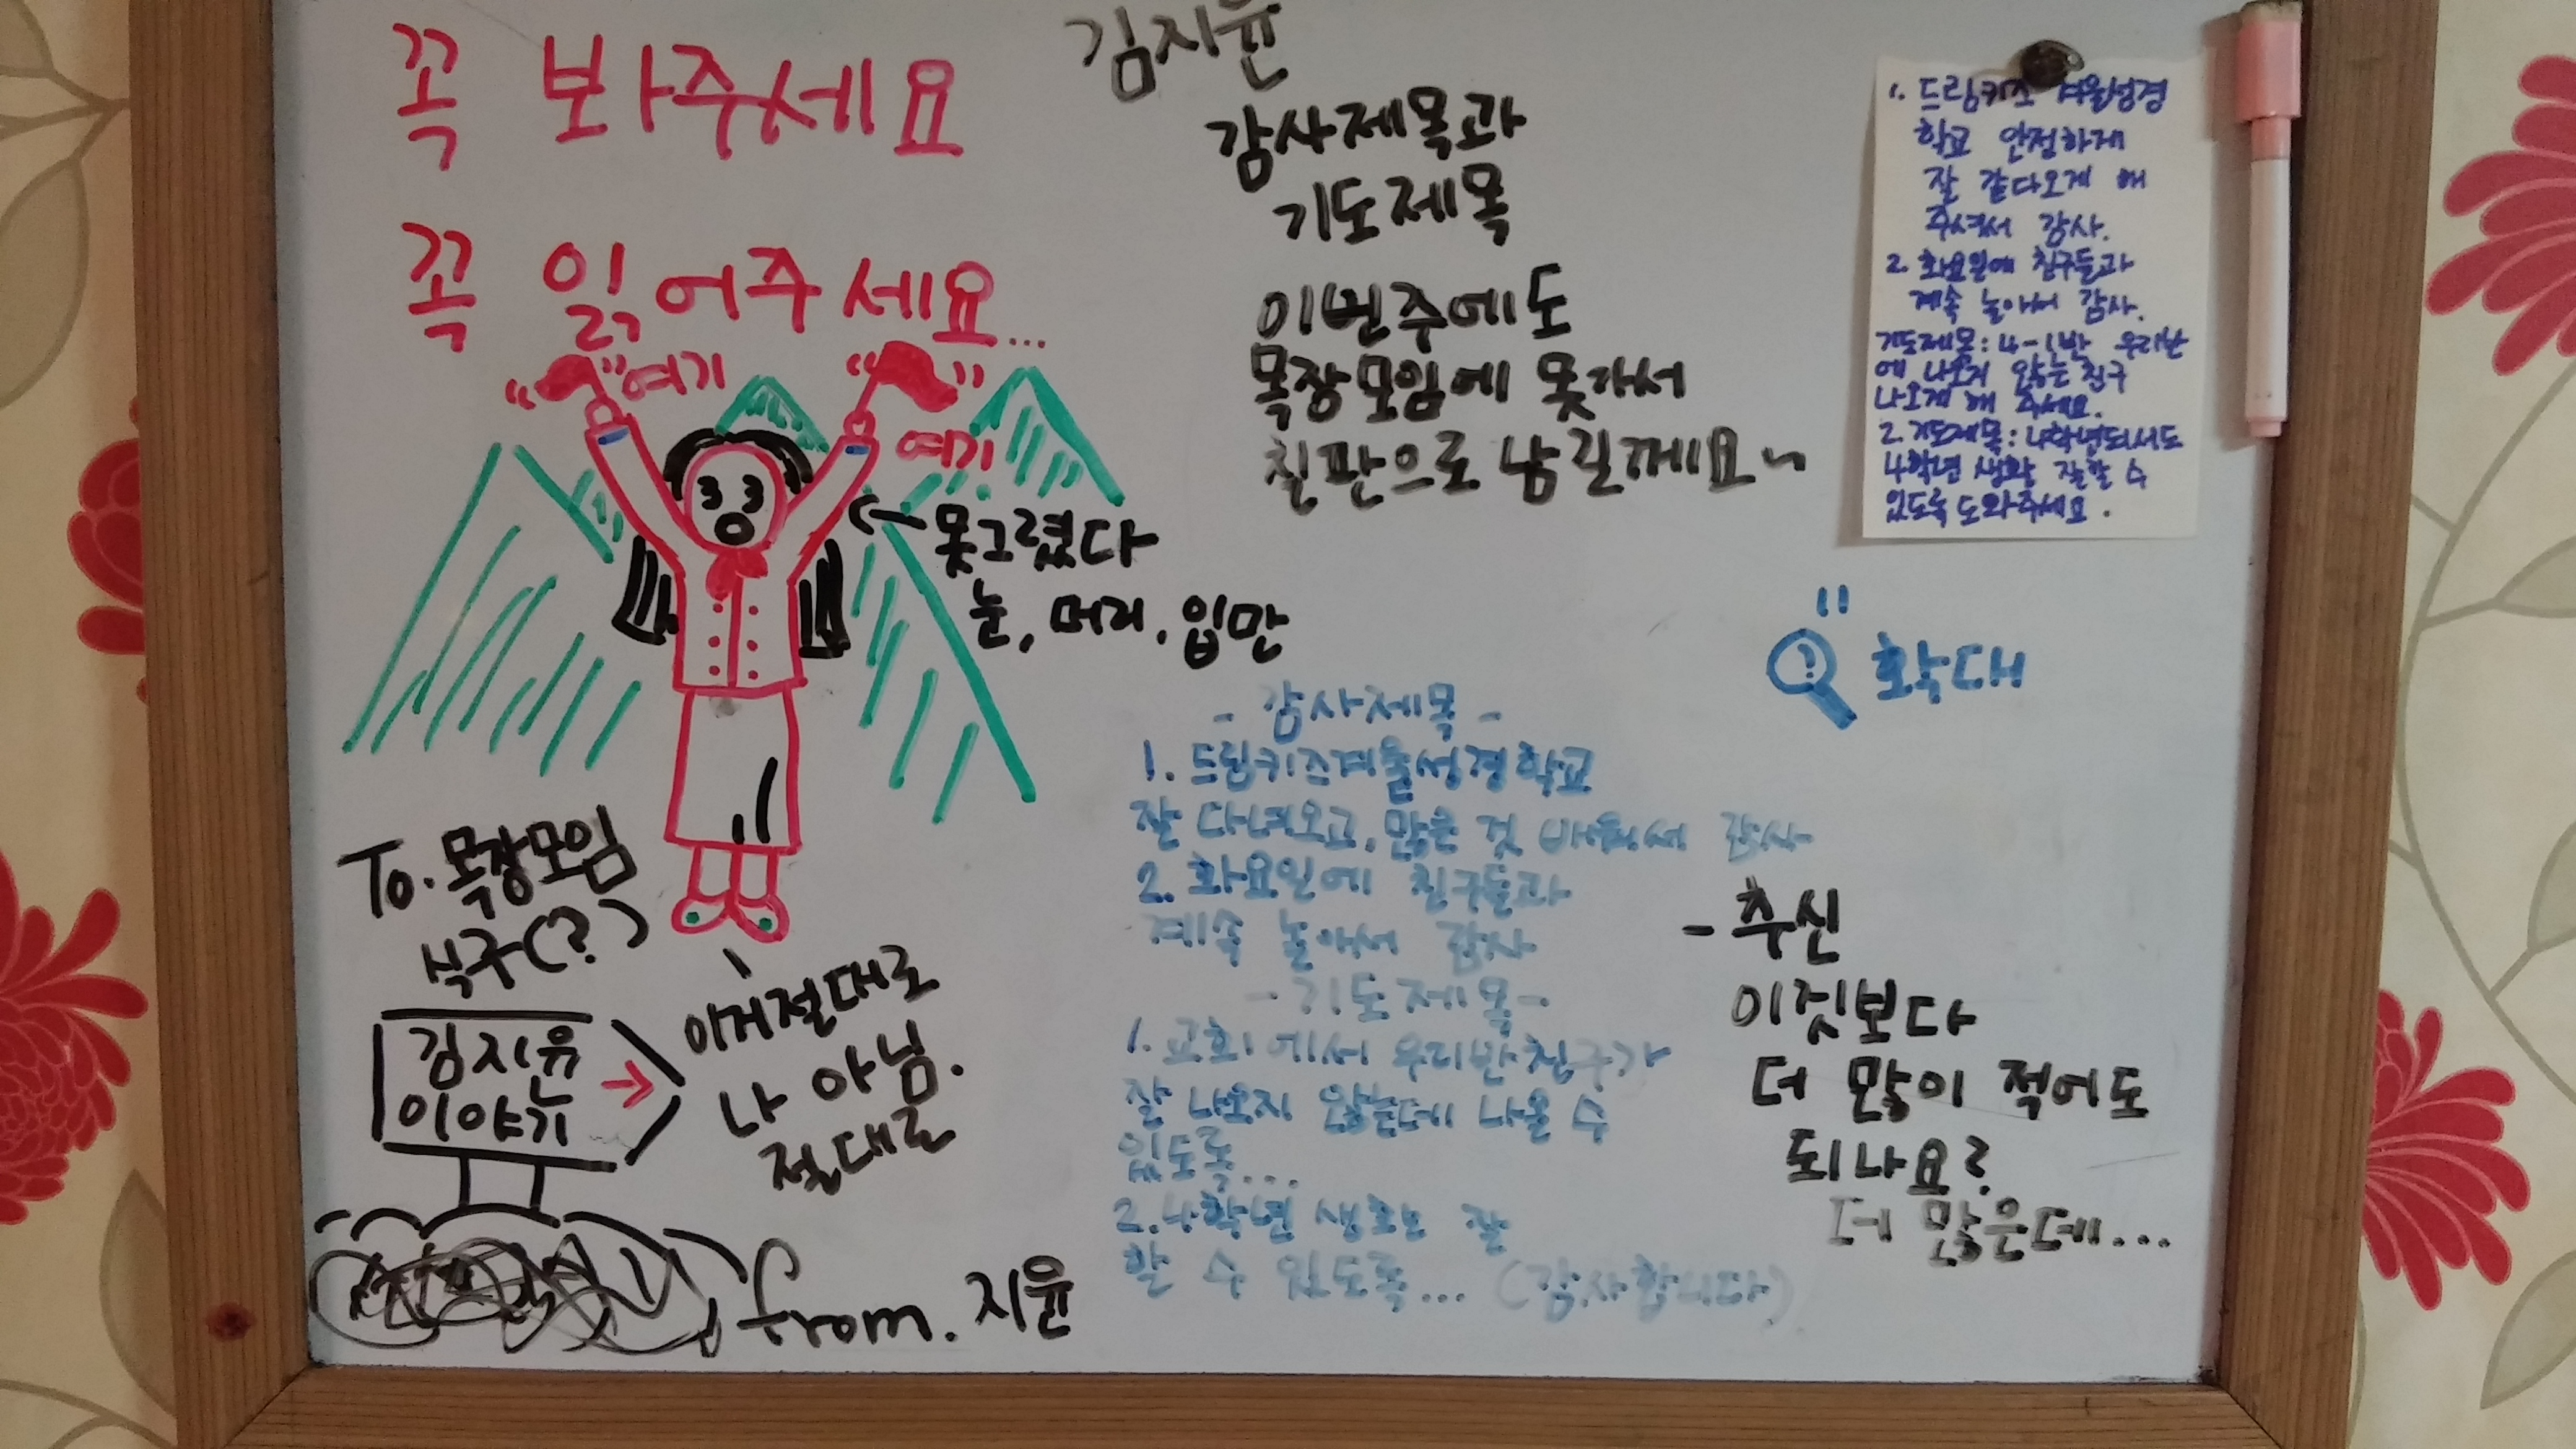 꼭 봐주세요
꼭 읽어주세요...
"여기
여기
못그렸다
눈, 머리, 입만
To. 목장모임
식구(?)
김지윤
이야기
이게절대로
나 아님.
절대로
from. 지윤
김지윤
감사제목과
기도제목
이번주에도
목장모임에 못가서
칠판으로 남길께요~
- 감사제목 -
1. 드림키즈겨울성경학교
잘 다녀오고, 많은 것 배워서 감사
2. 화요일에 친구들과
계속 놀아서 감사
- 기도제목 -
1. 교회에서 우리반친구가
잘 나오지 않는데 나올 수
있도록...
2. 4학년 생활도 잘
할 수 있도록... (감사합니다)
1. 드림키즈 겨울성경
학교 안전하게
잘 갔다오게 해
주셔서 감사.
2. 화요일에 친구들과
계속 놀아서 감사.
기도제목: 4-1반 우리반
에 나오지 않는 친구
나오게 해 주세요.
2. 기도제목: 4학년되서도
4학년 생활 잘할 수
있도록 도와주세요.
확대
- 추신
이것보다
더 많이 적어도
되나요?
더 많은데...